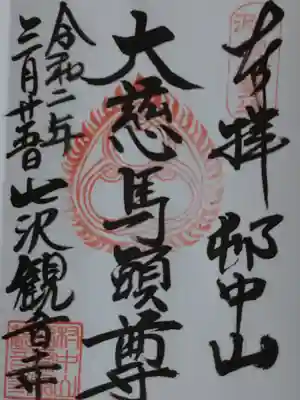 奉拝 邨中山
大慈馬頭尊
令和二年
三月廿五日 七沢観音寺